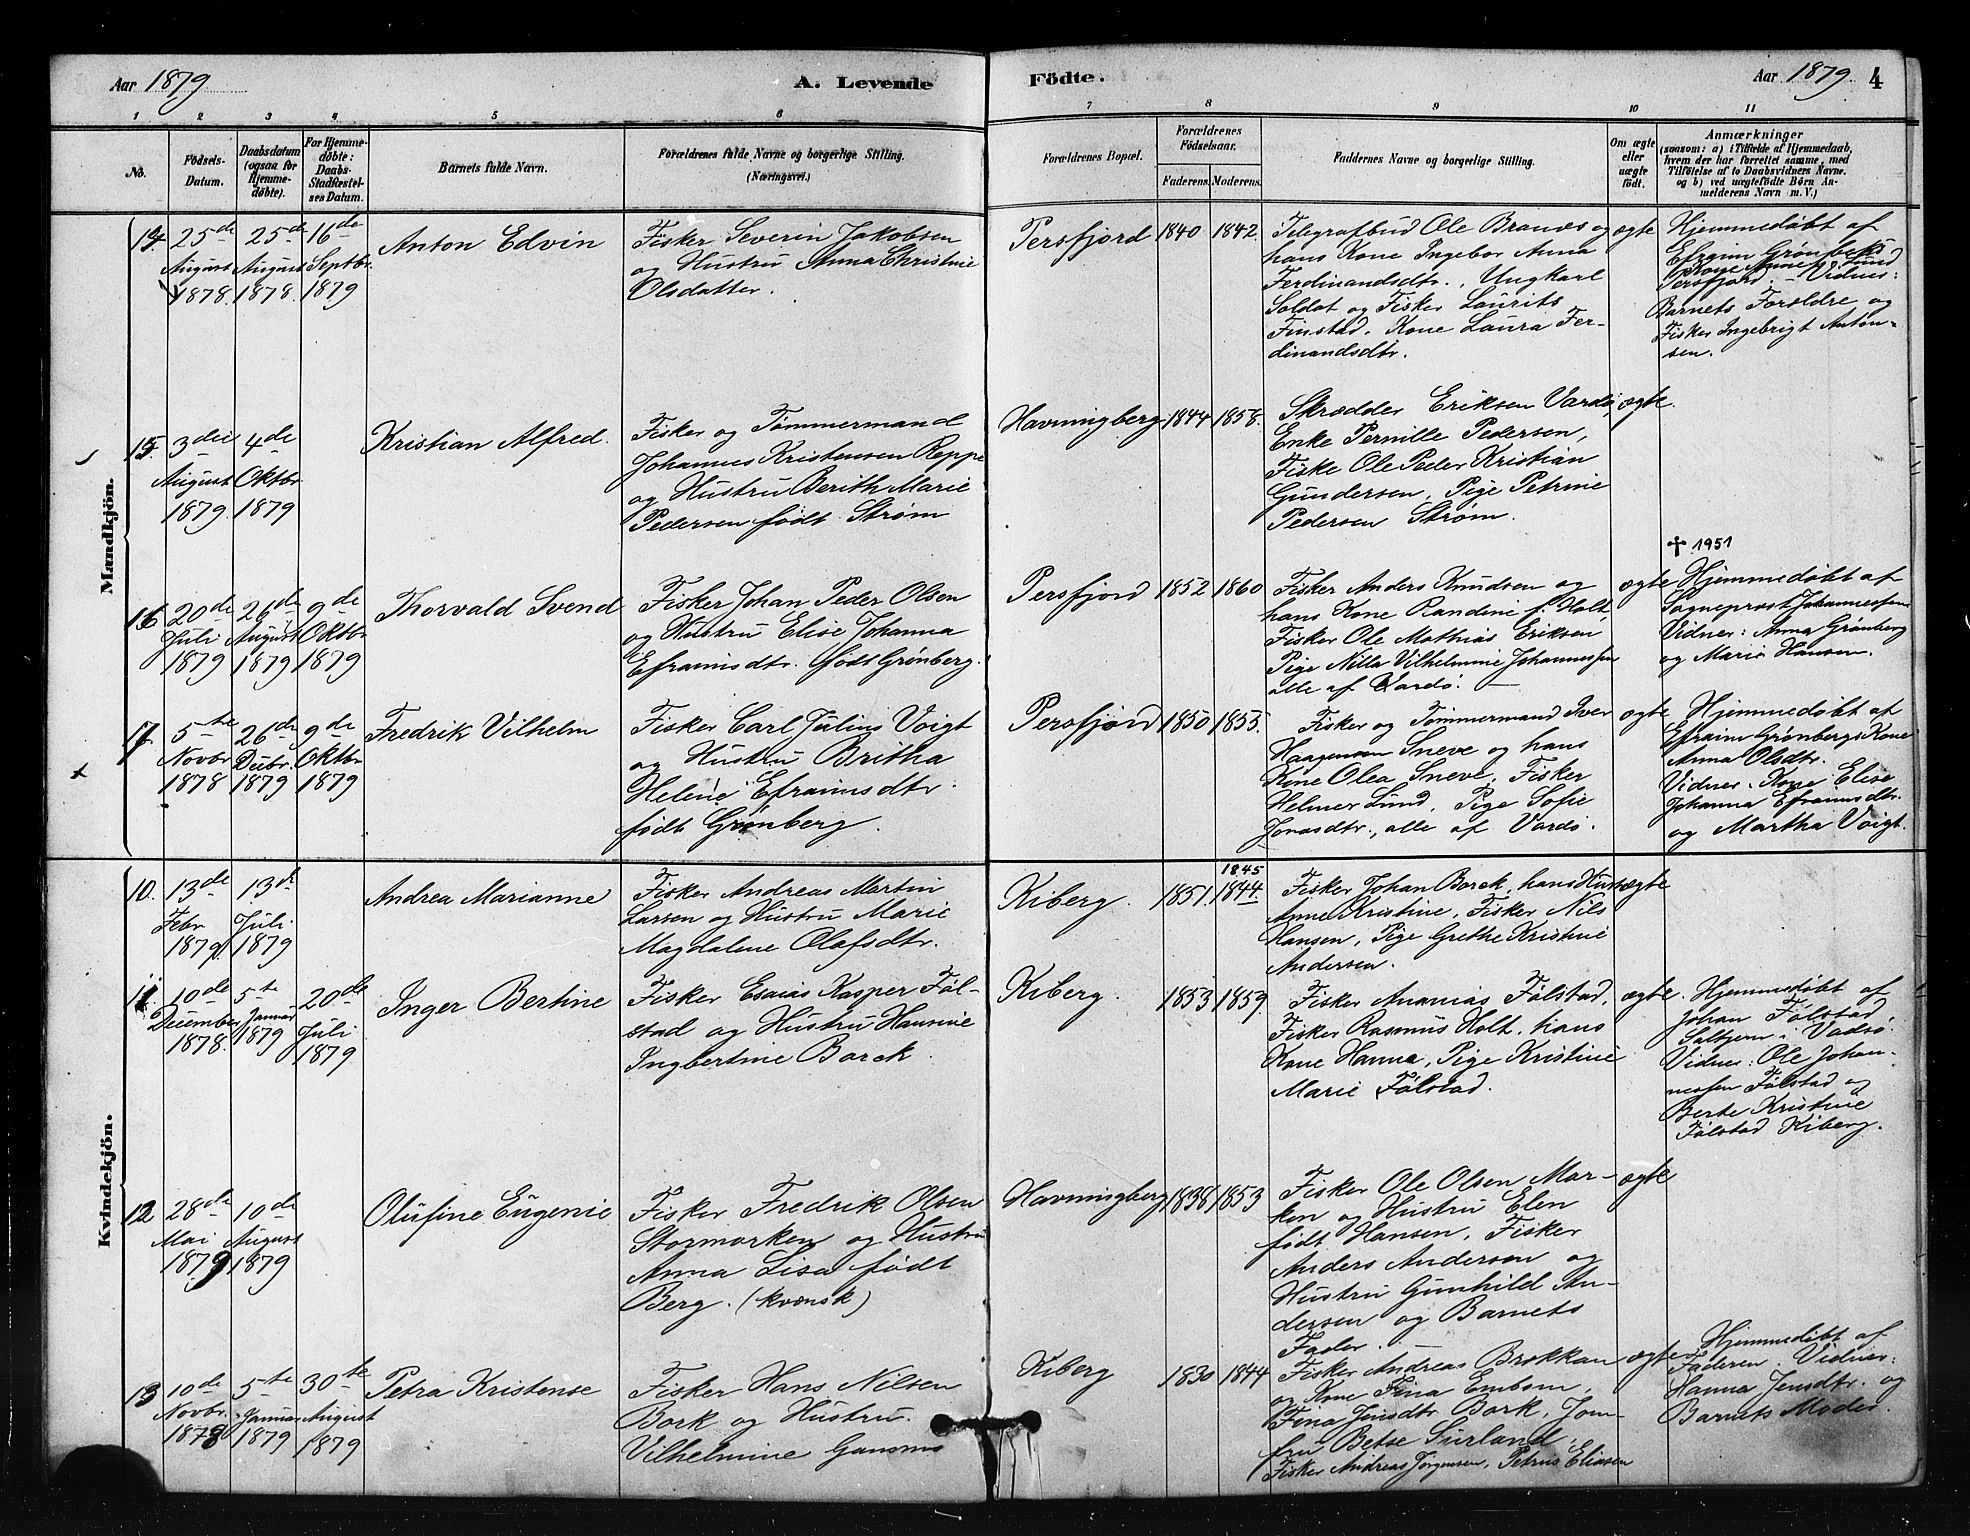 Aar 1879
A. Levende
Födte.
Aar 1879
4
1 2 3 4 5 6 7 8 9 10 11
No.
Födsels-
Datum.
Daabsdatum
(ogsaa for
Hjemme-
døbte).
For Hjemme-
døbte:
Daabs-
Stadfæstel-
ses Datum.
Barnets fulde Navn.
Forældrenes fulde Navne og borgerlige Stilling.
(Næringsvei.)
Forældrenes Bopæl.
Forældrenes
Födselsaar.
Faderens. Moderens.
Faddernes Navne og borgerlige Stilling.
Om ægte
eller
uægte
født.
Anmærkninger
(saasom: a) i Tilfælde af Hjemmedaab,
hvem der har forrettet samme, med
Tilføielse af to Daabsvidners Navne.
og b) ved uægtefödte Børn An-
melderens Navn m. V.)
Mandkjön.
14.
25de
August
1878.
25de
August
1878.
16de
Septbr
1879
Anton Edvin
Fisker Severin Jakobsen
og Hustru Anna Christine
Olsdatter.
Persfjord
1840
1842.
Telegrafbud Ole Brandes og
hans Kone Ingebor Anna
Ferdinandsdtr., Ungkarl
Soldat og Fisker Laurits
Finstad. Kone Laura Fer-
dinandsdtr.
ægte
Hjemmedøbt af
Efraim Grønbergs
Kone Anne Lund
Persfjord. Vidner:
Barnets Forældre og
Fisker Ingebrigt Anton-
sen.
15.
3die
August
1879.
4de
Oktbr
1879
Kristian Alfred.
Fisker og Tømmermand
Johannes Kristensen Reppe
og Hustru Berith Marie
Pedersen født Strøm
Havningberg
1844
1858.
Skrædder Eriksen Vardø,
Enke Pernille Pedersen,
Fiske Ole Peder Kristian
Gundersen, Pige Petrine
Pedersen Strøm.
ægte.
16
20de
Juli
1879
26de
August
1879
9de
Oktbr
1879
Thorvald Svend
Fisker Johan Peder Olsen
og Hustru Elise Johanna
Eframsdtr. født Grønberg.
Persfjord
1852
1860
Fisker Anders Knudsen og
hans Kone Randine f. Holt,
Fisker Ole Mathias Eriksen
Pige Nilla Vilhelmine Johannessen
alle af Vardø.
ægte
✝ 1951
Hjemmedøbt af
Sogneprost Johannessen
Vidner: Anna Grønberg
og Marie Hansen.
17.
5te
Novbr
1878
26de
Decbr.
1879
9de
Oktbr
1879
Fredrik Vilhelm
Fisker Carl Julius Voigt
og Hustru Britha
Helene Eframsdtr.
født Grønberg.
Persfjord
1850
1855.
Fisker og Tømmermand Iver
Haagensen Sneve og hans
Kone Olea Sneve, Fisker
Helmer Lund, Pige Sofie
Jonasdtr., alle af Vardø.
ægte
Hjemmedøbt af
Efraim Grønbergs Kone
Anna Olsdtr.
Vidner: Kone Elise
Johanna Efraimsdtr.
og Martha Voigt.
Kvindekjön.
10.
13de
Febr
1879.
13de
Juli
1879
Andrea Marianne
Fisker Andreas Martin
Larsen og Hustru Marie
Magdalene Olafsdtr.
Kiberg.
1851.
1845
1844.
Fisker Johan Borck, hans Hustru
Anne Kristine, Fisker Nils
Hansen, Pige Grethe Kristine
Andersen.
ægte
11.
10de
December
1878.
5te
Januar
1879
20de
Juli
1879
Inger Bertine
Fisker Esaias Kasper Fål-
stad og Hustru Hansine
Ingbertine Borck.
Kiberg.
1853
1859.
Fisker Ananias Fålstad,
Fisker Rasmus Holt, hans
Kone Hanna, Pige Kristine
Marie Fålstad.
ægte.
Hjemmedøbt af
Johan Fålstad,
Saltjern. Vadsø.
Vidner: Ole Johan-
nessen Fålstad og
Berte Kristine
Fålstad Kiberg.
12
28de
Mai
1879
10de
August
1879
Olufine Eugenie
Fisker Fredrik Olsen
Stormorken og Hustru
Anna Lisa født
Berg. (kvænsk)
Havningberg
1838
1853
Fisker Ole Olsen Mar-
ken og Hustru Elen
født Hansen, Fisker
Anders Andersen og
Hustru Gunhild An-
dersen og Barnets
Fader.
ægte
13
10de
Novbr.
1878
5te
Januar
1879
30te
August
1879
Petra Kristense
Fisker Hans Nilsen
Bork og Hustru
Vilhelmine
Kiberg
1830
1844
Fisker Andreas Brokkan
og Kone Fina Embom,
Fina Jensdtr Bork, Jom-
fru Betse Surland,
Fisker Andreas Jørgensen, Petrus Eliasen
ægte
Hjemmedøbt af
Faderen. Vidner:
Hanna Jensdtr. og
Barnets Moder.